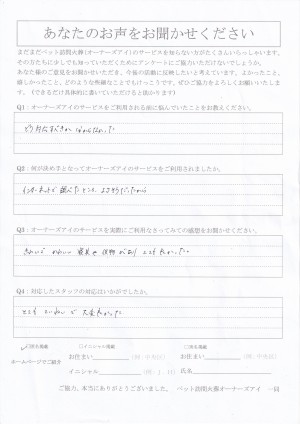 あなたのお声をお聞かせください
まだまだペット訪問火葬(オーナーズアイ)のサービスを知らない方がたくさんいらっしゃいます。
その方たちに少しでも知っていただくためにアンケートにご協力いただけないでしょうか。
あなた様のご意見をお聞かせいただき、今後の活動に反映したいと考えています。よかったこと、
嬉しかったこと、どのような些細なことでもけっこうです。ぜひご協力をよろしくお願いいたします。
(できるだけ具体的に書いていただけると助かります)
Q1:オーナーズアイのサービスをご利用される前に悩んでいたことをお教えください。
どう対応すべきか わからなかった
Q2:何が決め手となってオーナーズアイのサービスをご利用されましたか。
インターネットで 調べたところ、よさそうだったから
Q3:オーナーズアイのサービスを実際にご利用なさってみての感想をお聞かせください。
きれいで かわいい 置具や 供物があり とても良かった
Q4:対応したスタッフの対応はいかがでしたか。
とても ていねいで 大変良かった
ホームページでご紹介
□イニシャル掲載
お住まい (例:中央区)
イニシャル (例:I.H)
□実名掲載
お住まい (例:中央区)
氏名
ご協力、本当にありがとうございました。 ペット訪問火葬オーナーズアイ 一同